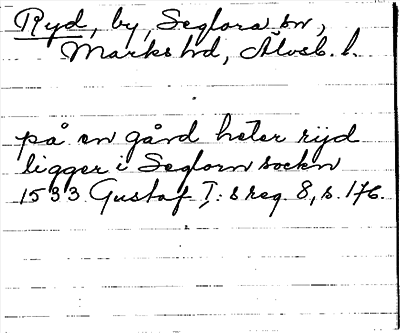 Ryd, by, Seglora sn,
Marks hd, Älvsb. l.
på en gård heter rijd
ligger i Seglorn sockn
1533 Gustaf I:s reg. 8, s. 176.